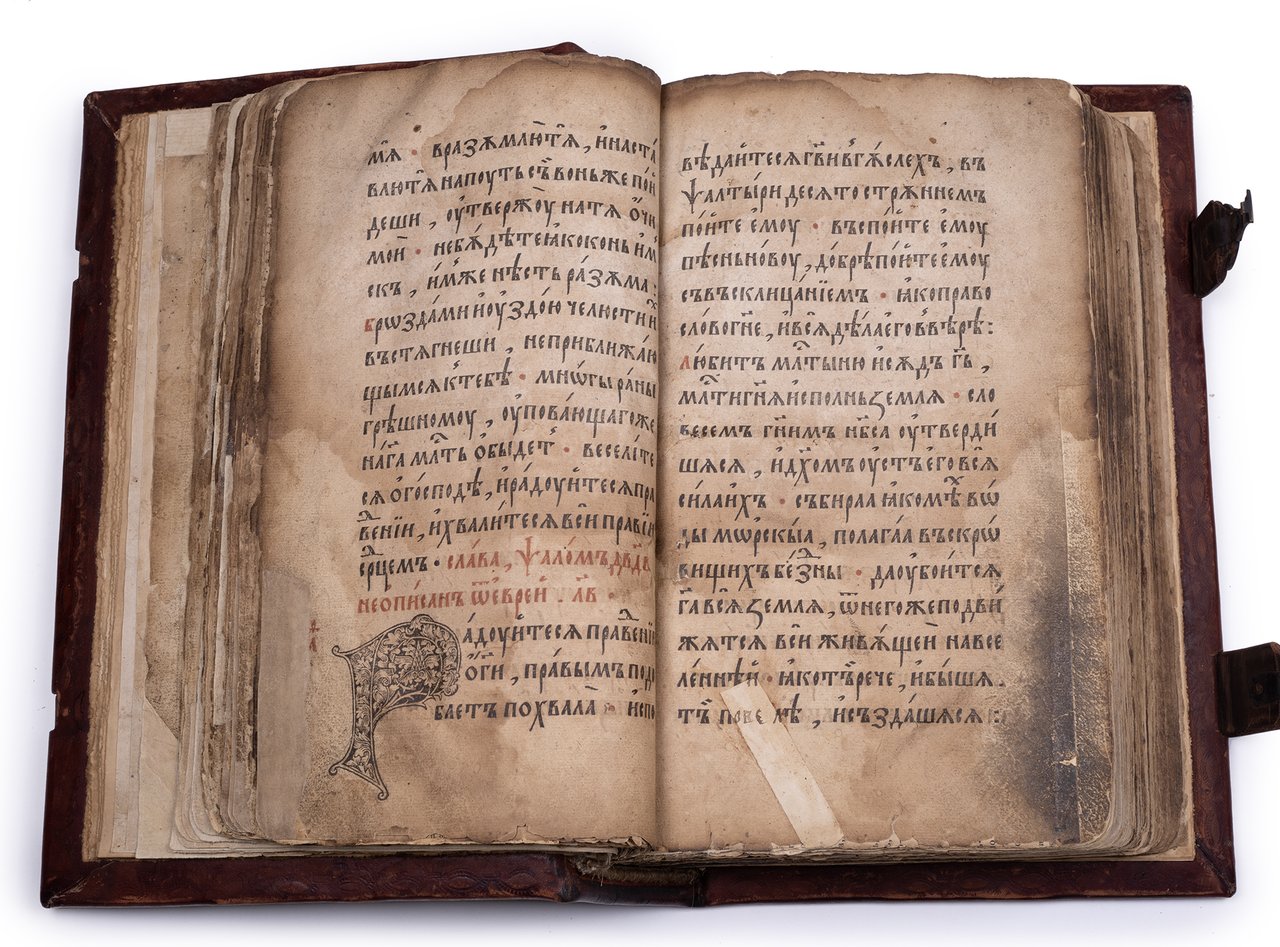 мѧ · вразѫмлю́тѧ , и҆наста́
влютѧ напоуть съ̑ вонь же по́и
деши , оу҆твержоу натѧ о҆́чи
мои̑ · небѫ́дѣте ꙗ҆коконь и҆м̑
скъ , и҆м̑же нѣсть ра́зѫма :
Брѡзда́ми и҆оуздо́ю челюсти и҆́
въстѧгнеши , неприближа́ю
щымсѧ к̑тебѣ̀ · мнѡ́гы ра́ны
грѣшномоу , оу҆пова́ющаго же
на́г҃а мл҃ть ѡ҆быдет̑ · весели́те
сѧ о҆го́сподѣ , и҆ра́доуи̑тесѧ пра
ве́нїи , и҆хвали́тесѧ вси̑ пра́вїи
ср҃цемъ · слава , ѱало́мъ дв҃дв
неописанъ ѿе҆вреи̑ . л҃в ·
Ра́доуи̑тесѧ пра́ве́нїи
о҆г҃ѝ , пра́вымъ подо
баетъ похвала̀ · и҆спо
вѣдаи̑тесѧ гв҃и въ гѫ́слехъ , въ
ѱалты́ри десѧтострѫ́ннемъ
по́и̑те е҆моу · въспо́и̑те е҆моу
пѣ́снь но́воу , до́брѣ по́и̑те е҆моу
съвъсклица́нїемъ · ꙗ҆ко право
сло́во гн҃е , и҆всѧ̀ дѣла̀ е҆го въ вѣ́рѣ :
Любитъ мл҃тыню и҆ сѫдъ гь҃ ,
мл҃ти гн҃ѧ и҆сполнь ꙁемлѧ · сло
весемъ гн҃имъ нб҃са оу҆тверди́
шѧсѧ , и҆дх҃омъ оу҆стъ е҆го всѧ̀
си́ла и҆хъ · събираа ꙗ҆ко мѣ̑ вѡ́
ды мѡрскыа , полагаа въ скрѡ́
вищихъ бе́здны · да оу҆боитсѧ
г҃а всѧ̀ ꙁемлѧ , ѿнегоже подви́
жѧтсѧ вси̑ живѫ́щеи̑ на все
ле́ннѣи̑ · ꙗ҆ко тъ̑ рече , и҆бышѧ .
тъ̑ пове лѣ , и҆създа́шѧсѧ :